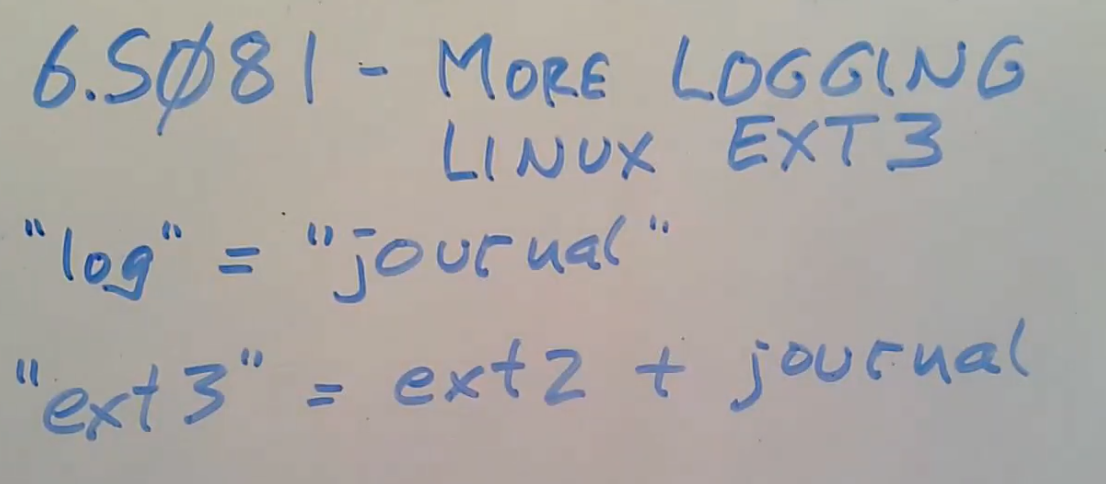 6.S081 - MORE LOGGING
LINUX EXT3
"log" = "journal"
"ext3" = ext2 + journal